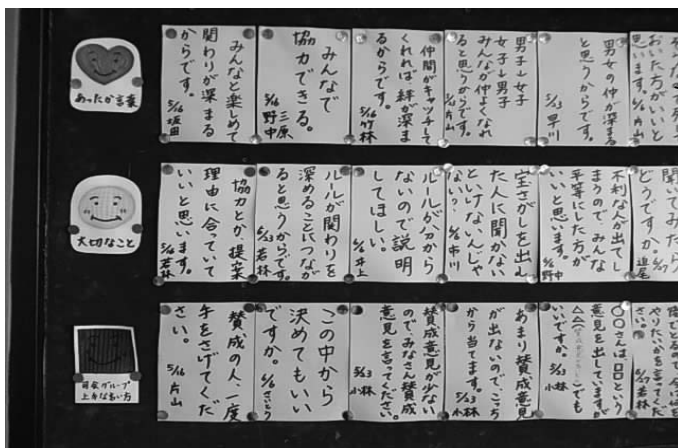 あったか言葉
みんなと楽しめて
関わりが深まる
からです。
5/16 坂田
みんなで
協力できる。
5/16 三原
野中
仲間がキャッチして
くれれば絆が深ま
るからです。
5/16 竹林
男子↓女子
女子↓男子
みんなが仲よくなれ
ると思うからです。
片山
男女の仲が深まる
と思うからです。
5/23 早川
おいた方がいいと
思います。
片山
大切なこと
協力とか提案
理由に合っていて
いいと思います。
5/16 若林
ルールが関わりを
深めることにつなが
ると思うからです。
5/23 若林
ルールが分から
ないので説明
してほしい。
井上
宝さがしを出し
た人に聞かない
といけないんじゃ
ない?
市川
不利な人が出てし
まうので、みんな
平等にした方が
いいと思います。
野中
聞いてみたら
どうですか。
司会グループ
上手な言い方
賛成の人、一度
手をさげてくだ
さい。
5/16 片山
この中から
決めてもいい
ですか。
さいとう
賛成意見がない
のでみなさん賛成
意見を言ってください。
5/23 小林
あまり賛成意見
が出ないので、こっち
から当てます。
5/23 小林
○○さんは、□□という
意見を出していますが
でも
いいですか。
5/23 小林
やりたいかを言ってくだ
さい。
若林